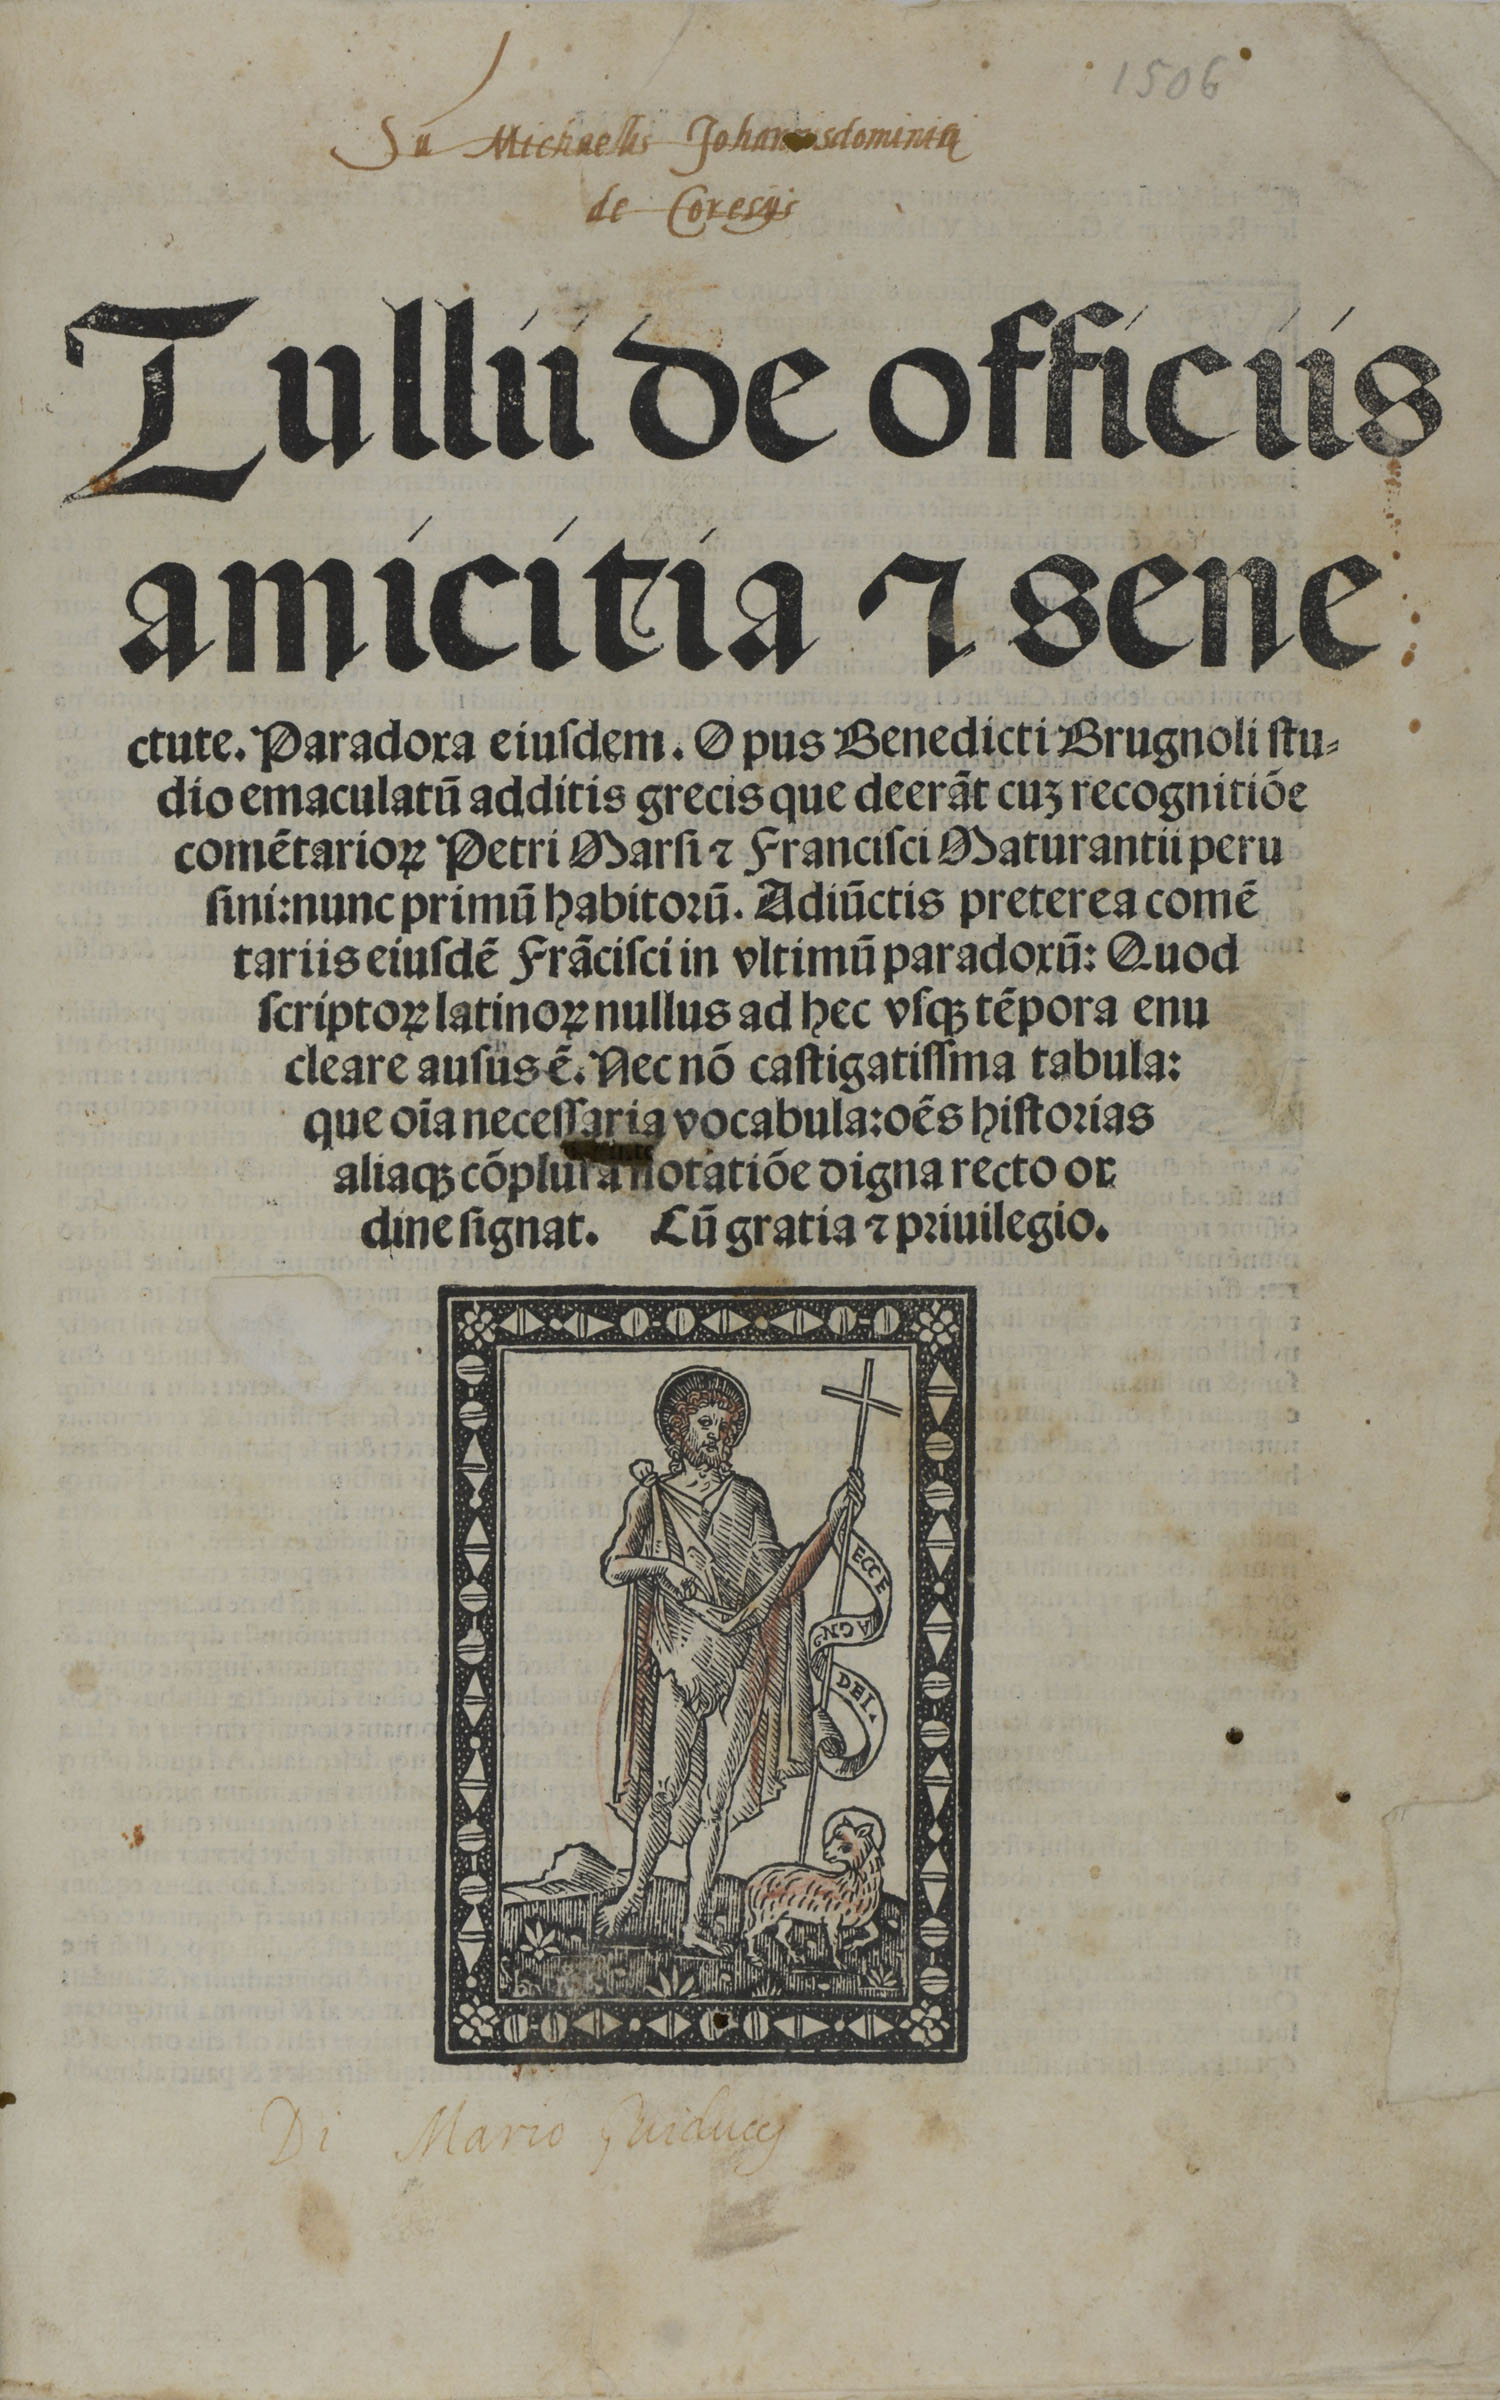 1506
Su Michaelis Johannisdominici
de Coresijs
Tullii de officiis
amicitia ⁊ sene
ctute. Paradoxa eiuſdem. Opus Benedicti Brugnoli ſtu⸗
dio emaculatū additis grecis que deerāt cuꝫ recognitiōe
comētarioꝝ Petri Marſi ⁊ Franciſci Maturantii peru
ſini: nunc primū habitorū. Adiūctis preterea comē
tariis eiuſdē Frāciſci in vltimū paradoxū: Quod
ſcriptoꝝ latinoꝝ nullus ad hec vſqꝫ tēpora enu
cleare auſus ē. Nec nō caſtigatiſſima tabula:
que oīa neceſſaria vocabula: oēs hiſtorias
aliaqꝫ cōplura notatiōe digna recto or
dine ſignat. Cū gratia ⁊ priuilegio.
ECCE
AGNꝰ
DEI.
Di Mario Guiducci